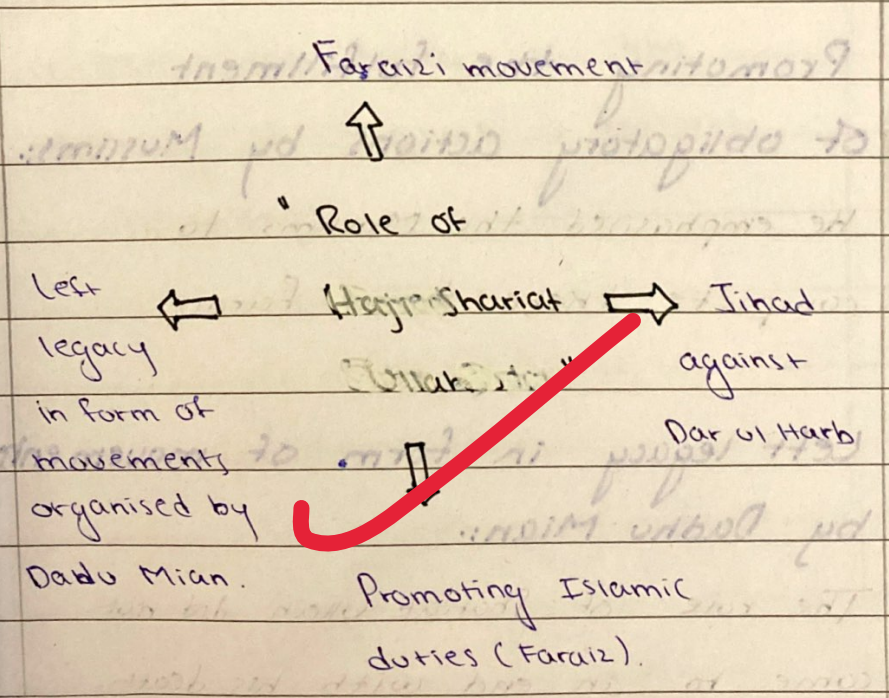 Faraizi movement
" Role of
Haji Shariat
Ullah "
Left
legacy
in form of
movements
organised by
Dadu Mian.
Jihad
against
Dar ul Harb
Promoting Islamic
duties (Faraiz).